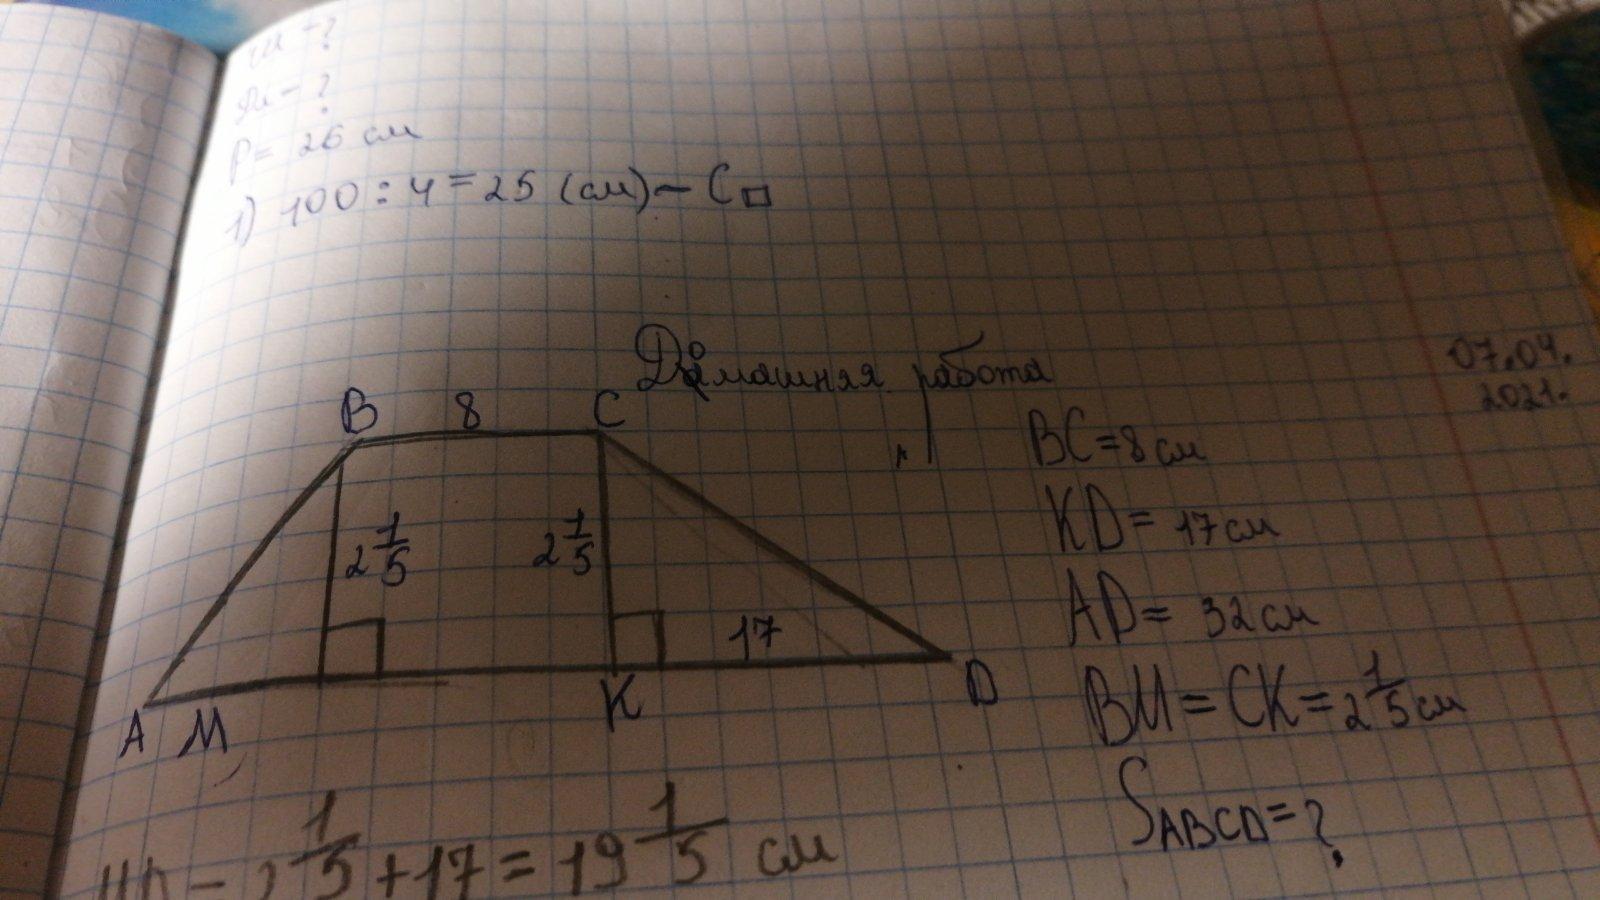 Ш - ?
Дл - ?
P = 26 см
1) 100 : 4 = 25 (см) - С□
Домашняя работа
07.04.
2021.
B 8 C
BC = 8 см
KD = 17 см
2 1/5 2 1/5
AD = 32 см
17
A M K D
BM = CK = 2 1/5 см
S ABCD = ?
2 1/5 + 17 = 19 1/5 см